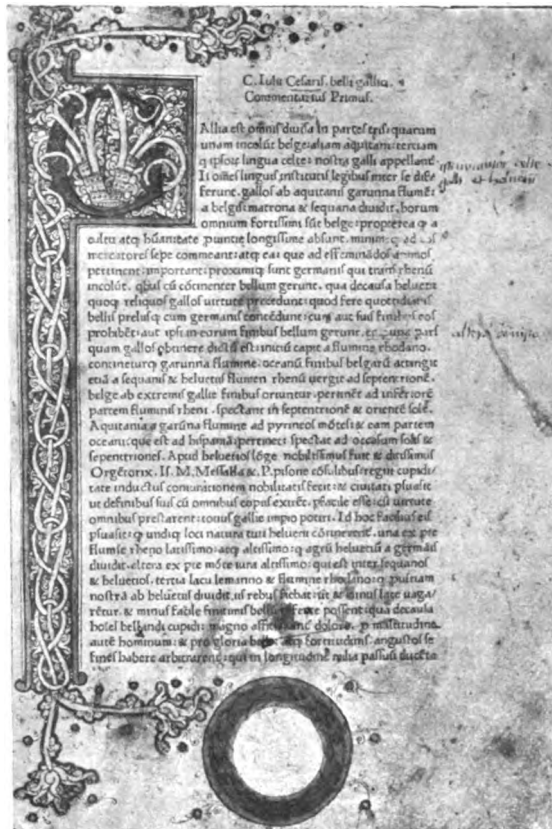 C. Iulii Cesaris. belli gallici.
Commentarius Primus.
Allia est omnis diuisa in partes tris: quarum
unam incolūt belge: aliam aquitani: tertiam
q ipsorum lingua celte: nostra galli appellant̄
Ii om̄es lingua institutis legibus inter se diffe
ferunt. gallos ab aquitanis garunna flumē:
a belgis matrona & sequana diuidit. horum
omnium fortissimi sūt belge: propterea q a
cultu atq hūanitate longissime absunt. minimeq ad eos
mercatores sepe commeant: atq ea: que ad effeminādos animos
pertinent: important: proximiq sunt germanis qui trans rhenū
incolūt. qbus cū cōtinenter bellum gerunt. qua decausa heluetii
quoq reliquos gallos uirtute precedunt: quod fere quotidianis
beliis cum germanis concedunt: cum aut suis finibus eos
prohibēt: aut ipsi in eorum finibus bellum gerunt. pars
quam gallos obtinere dictū est: initiū capit a flumine rhodano.
continetur garunna flumine. oceanū finibus belgarū attingit
etiā a sequanis & heluetiis flumen rhenū uergit ad septentrionē.
belge ab extremis gallie finibus oriuntur. pertinēt ad inferiorē
partem fluminis rheni. spectant in septentrionē & orientē solē.
Aquitania a garūna flumine ad pyrineos mōtes: & eam partem
oceani: que est ad hispaniā: pertinet: spectat ad occasum solis &
sepentriones. Apud heluetios lōge nobilissimus fuit & ditissimus
Orgētorix. Is. M. Messalla &. P. pisone cōsulibus: regni cupidi
tate inductus coniurationem nobilitatis fecit: & ciuitati psuasit
ut definibus suis cū omnibus copiis exirēt. pfacile esse: cū uirtute
omnibus prestarent: totius gallie impio potiri. Id hoc facilius eis
psuasit: q undiq loci natura heluetii cōtinent̄. una ex pte
flumie rheno latissimo: atq altissimo: q agrū heluetiū a germanis
diuidit. altera ex pte mōte iura altissimo: qui est inter sequanos
& heluetios. tertia lacu lemanno & flumine rhodano: q
nostrā ab heluetiis diuidit. iis rebus fiebat: ut & minus late uaga/
rētur. & minus facile finitimis bellum inferre possent: qua decausa
hoīes bellandi cupidi: magno dolore. p multitudine
autē hominum: & pro gloria belli atq fortitudinis. angustos se
fines habere arbitrarent̄: qui in longitudinē milia passuū ducēta